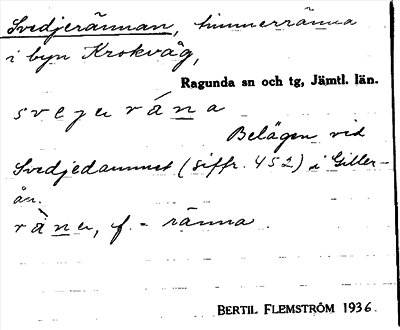 Svedjerännan, timmerränna
i byn Krokvåg,
Ragunda sn och tg, Jämtl. län.
svejerána
Belägen vid
Svedjedammet (siffr. 452) i Giller-
ån.
ràner, f. = ränna
BERTIL FLEMSTRÖM 1936.